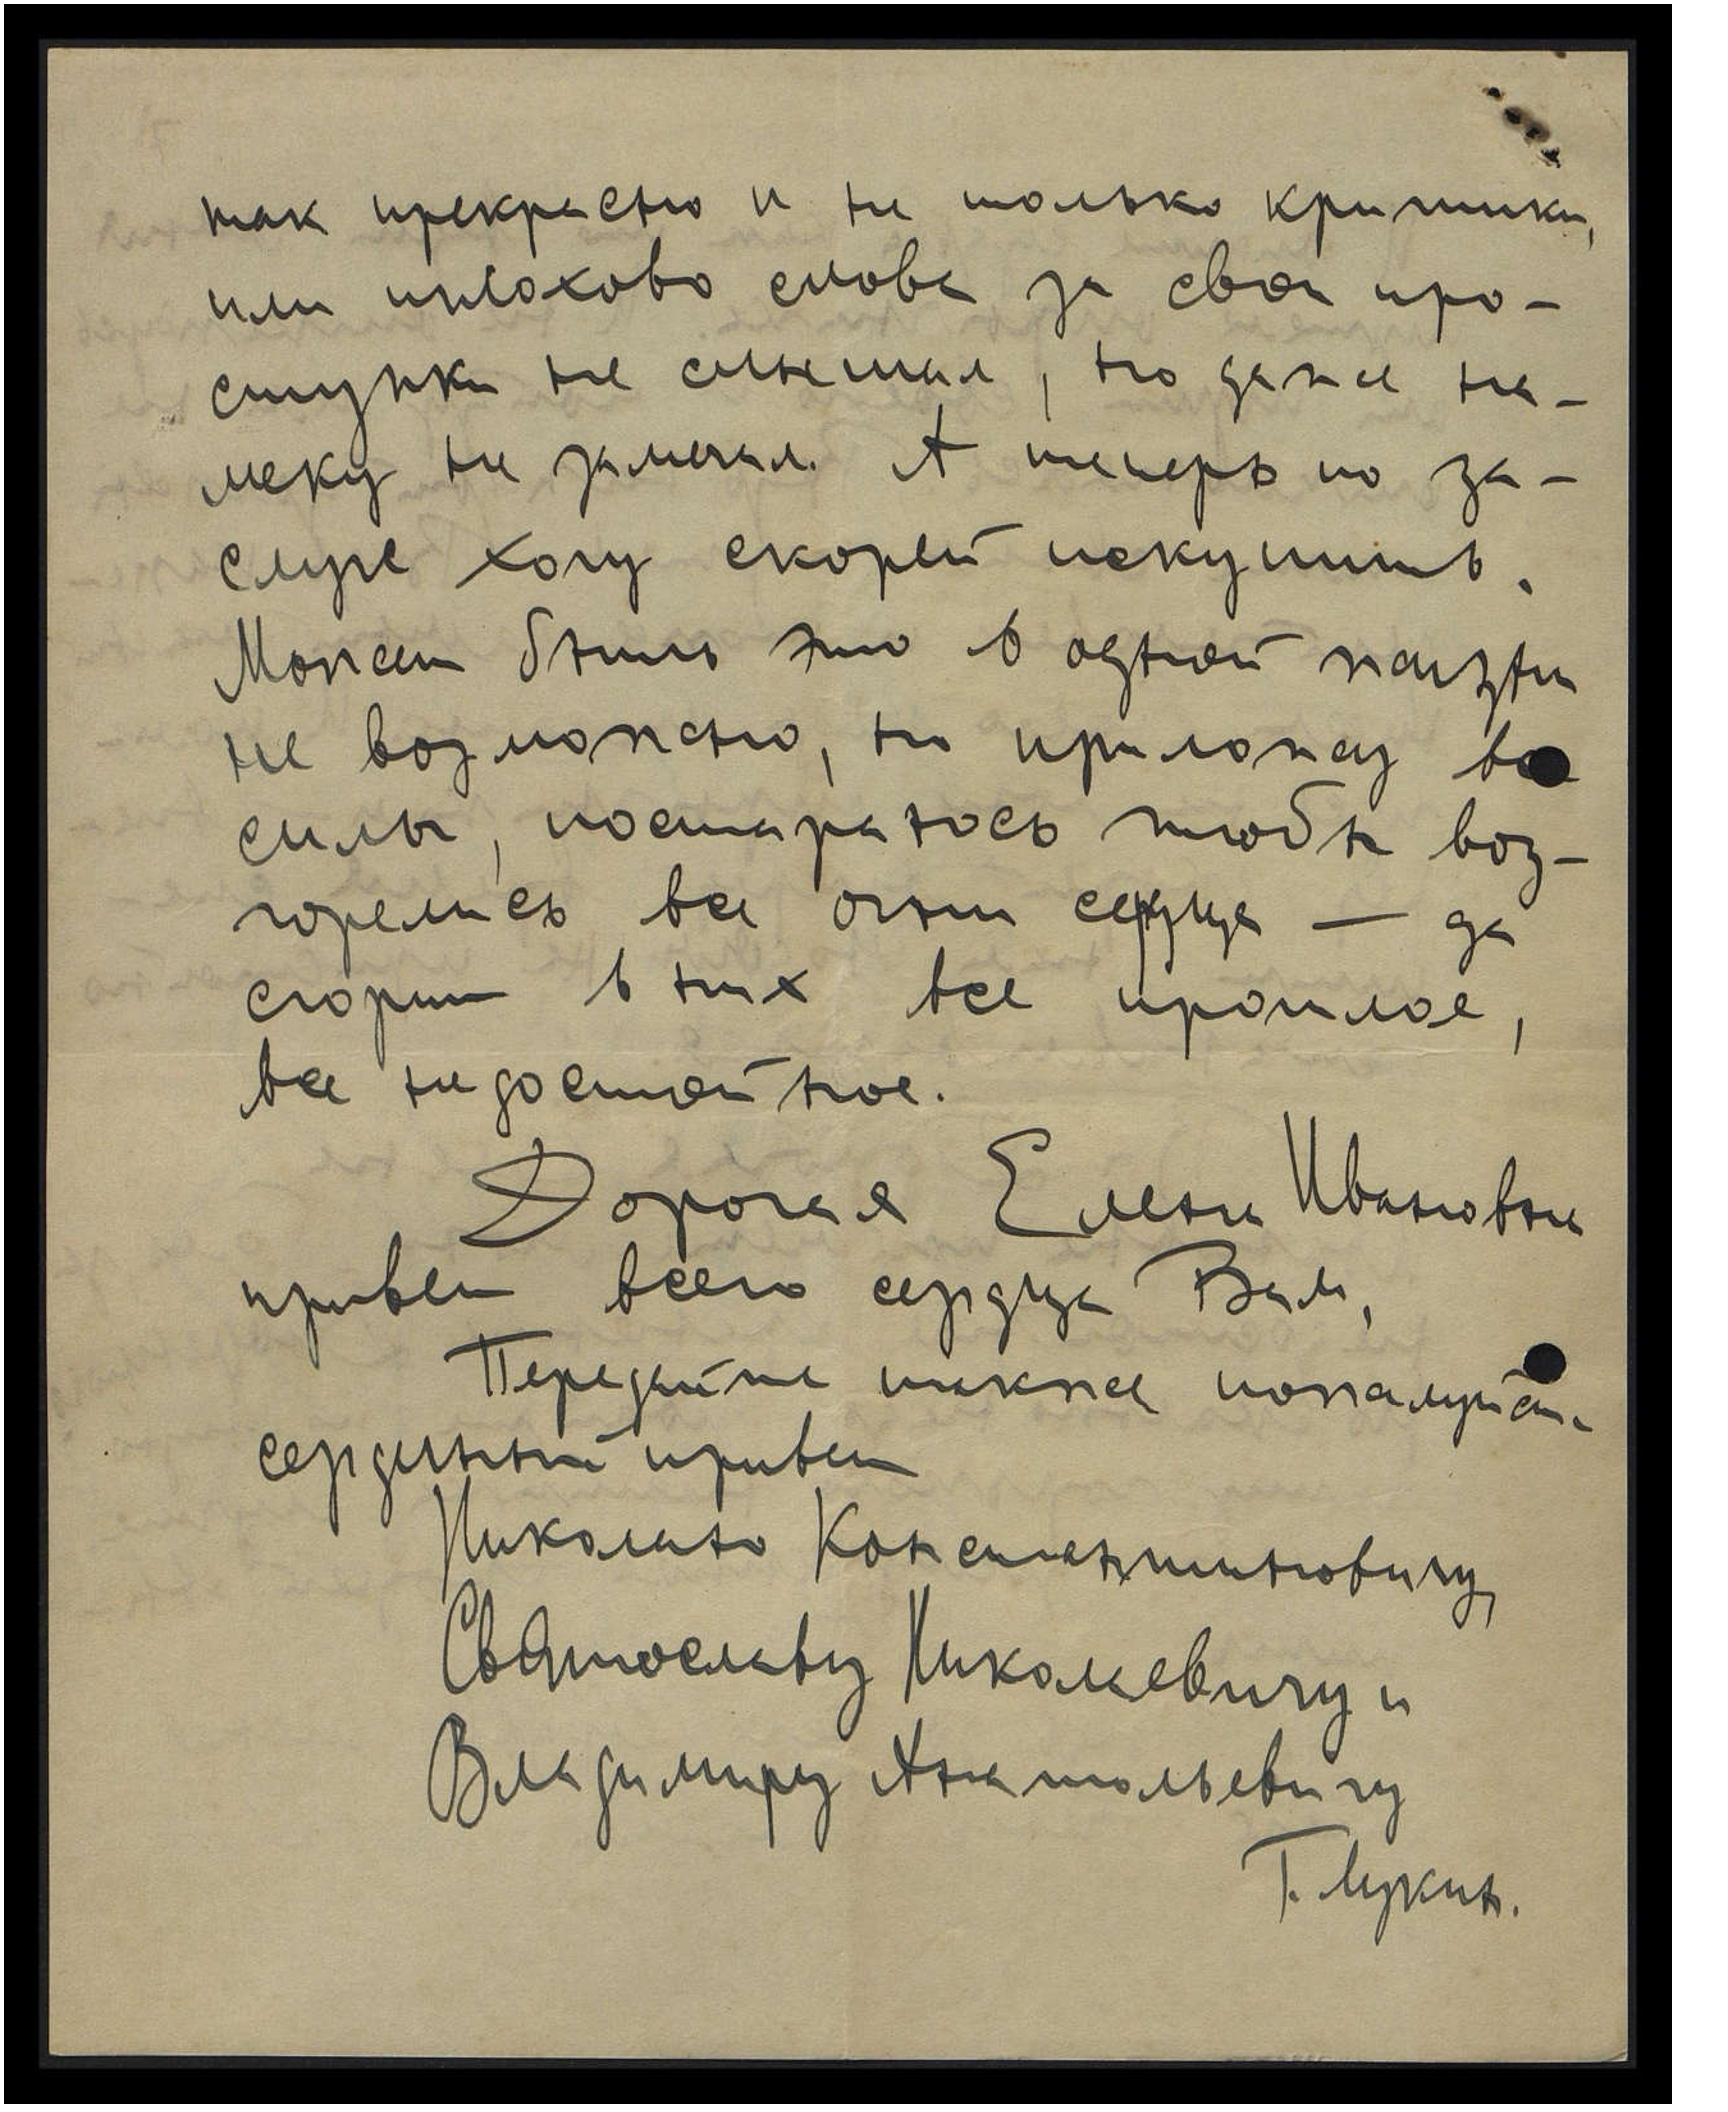 так прекрасно и не только критики,
или плохово слова за свои про-
ступки не слышал, но даже на-
меку не замечал. А теперь по за-
слуге хочу скорей искупить.
Может быть это в одной жизни
не возможно, но приложу все
силы, постараюсь чтобы воз-
горелись все огни сердца — да
сгорит в них все прошлое,
все недостойное.
Дорогая Елена Ивановна
привет всего сердца Вам,
Передайте также пожалуйста
сердечный привет
Николаю Константиновичу,
Святославу Николаевичу и
Владимиру Анатольевичу
Г. Лукин.